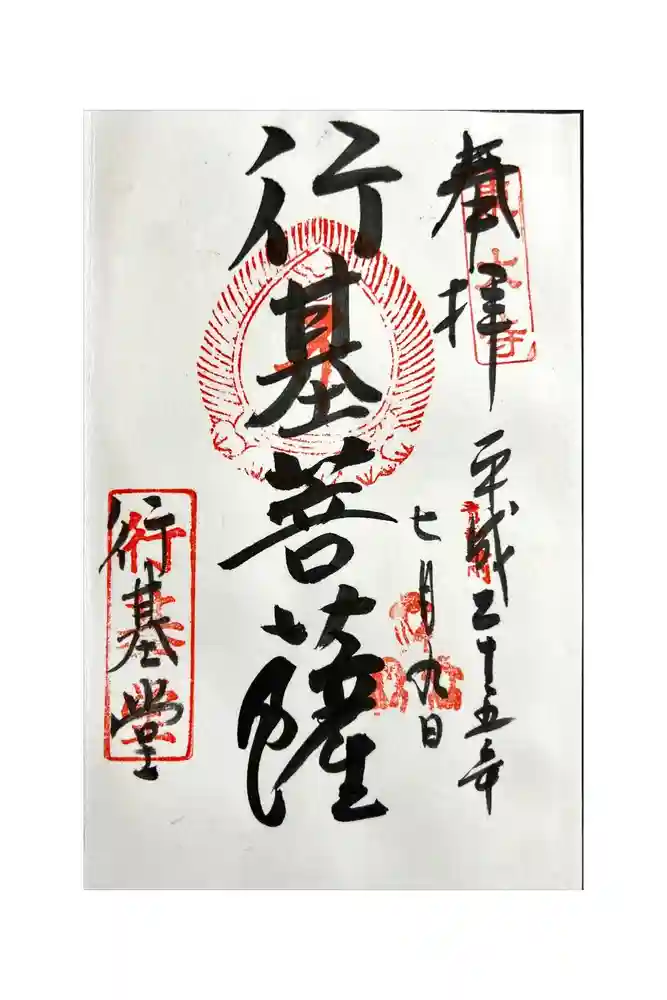 奉拝
東大寺
平成二十五年
七月九日
行基菩薩
行基堂
行基堂